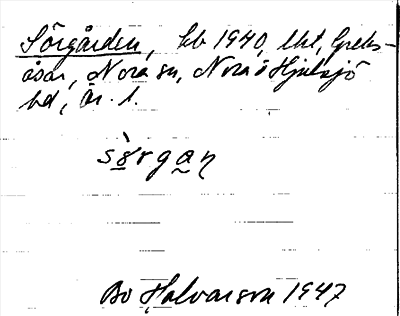 Sörgården, kb 1940, lht, Greks-
åsar, Nora sn, Nora o Hjulsjö
hd, Ör. l.
sòrgaɳ
Bo Halvarson 1947